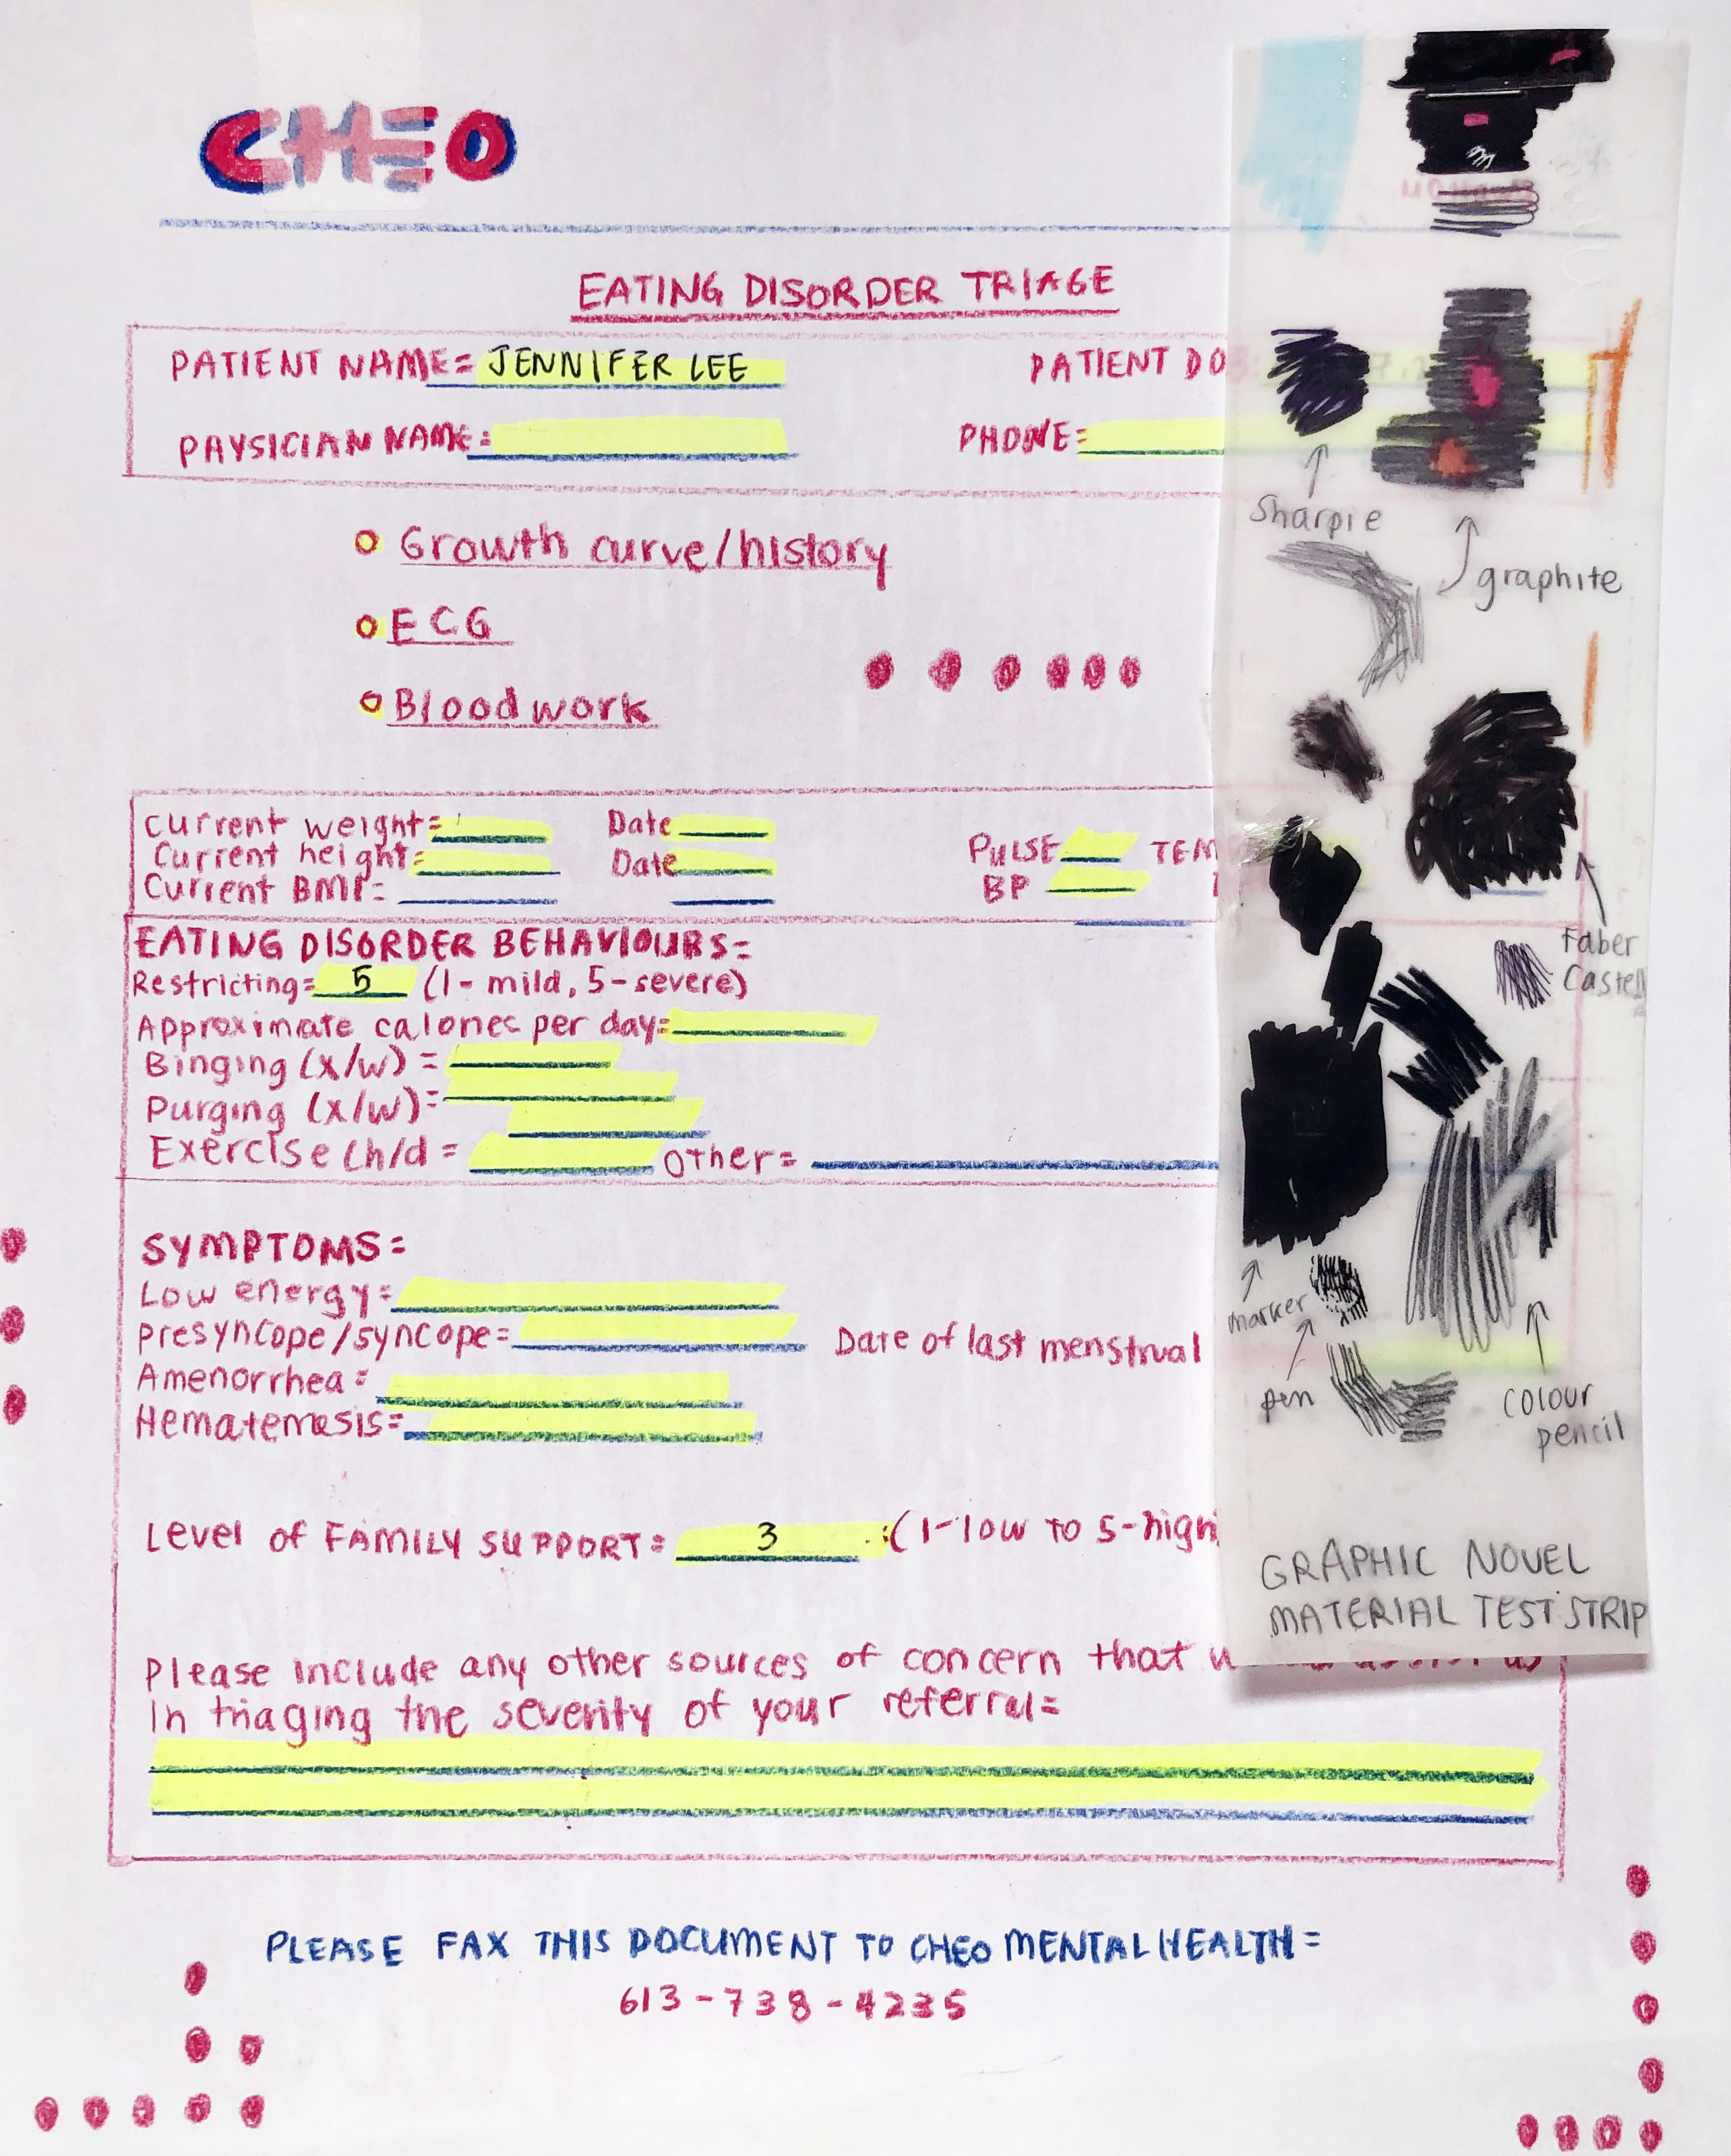 CHEO
EATING DISORDER TRIAGE
PATIENT NAME= JENNIFER LEE PATIENT DO
PHYSICIAN NAME= PHONE=
Growth curve/history
ECG
Bloodwork
Current weight= Date
Current height= Date
Current BMI=
PULSE TEM
BP
EATING DISORDER BEHAVIOURS=
Restricting= 5 (1- mild, 5-severe)
Approximate calories per day=
Binging (x/w) =
Purging (x/w)=
Exercise (h/d = Other=
SYMPTOMS=
Low energy=
Presyncope/syncope= Date of last menstrual
Amenorrhea=
Hematemesis=
Level of FAMILY SUPPORT= 3 :(1-low to 5-high
Please include any other sources of concern that
In triaging the severity of your referral=
PLEASE FAX THIS DOCUMENT TO CHEO MENTAL HEALTH=
613-738-4235
Sharpie
graphite
Faber
Castell
marker
pen
colour
pencil
GRAPHIC NOVEL
MATERIAL TEST STRIP